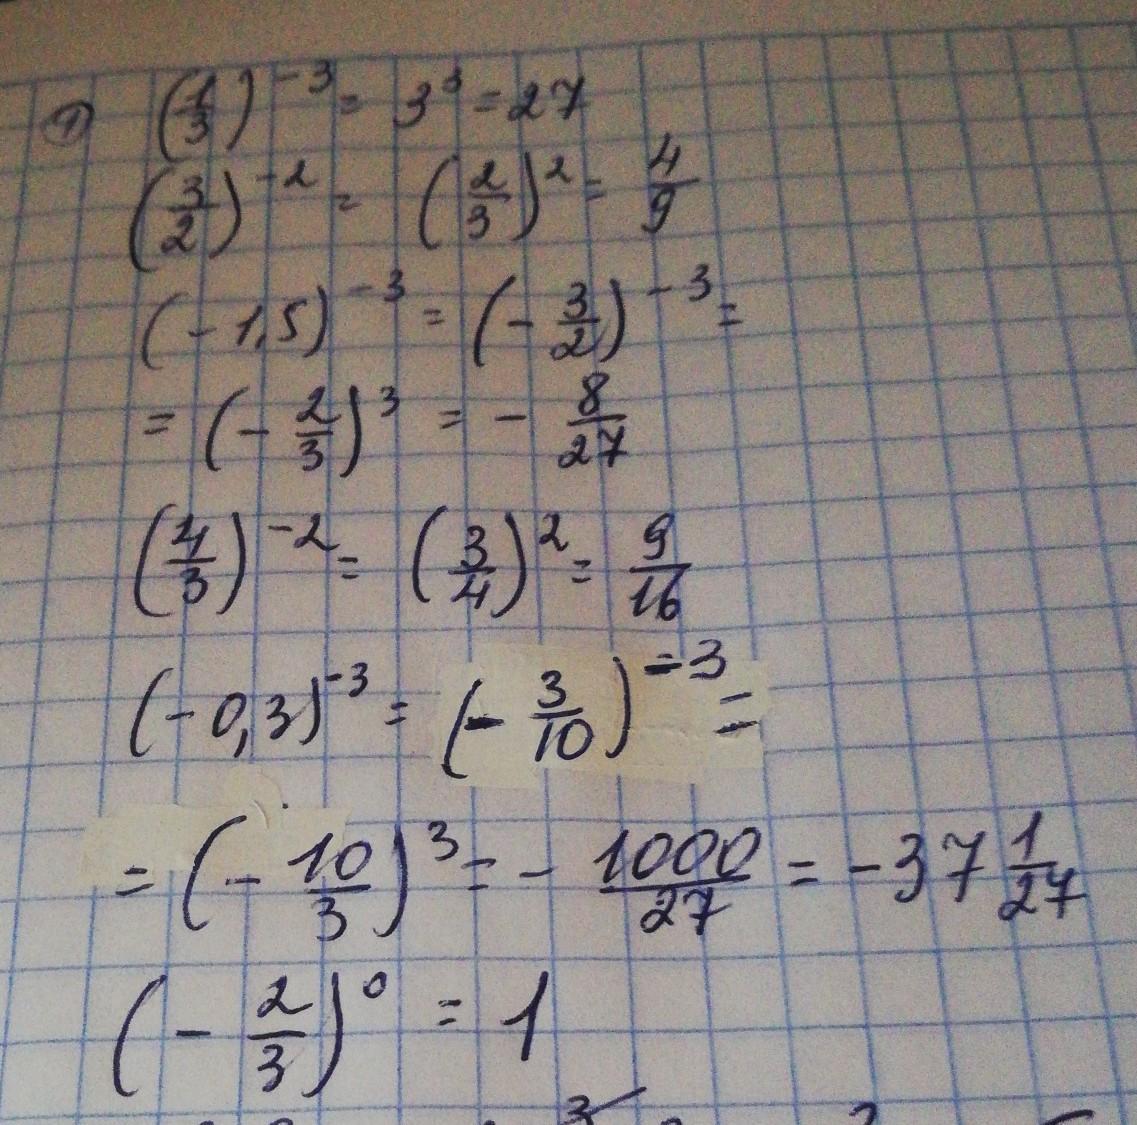 ① (1/3)^-3 = 3^3 = 27
(3/2)^-2 = (2/3)^2 = 4/9
(-1,5)^-3 = (-3/2)^-3 =
= (-2/3)^3 = -8/27
(4/3)^-2 = (3/4)^2 = 9/16
(-0,3)^-3 = (-3/10)^-3 =
= (-10/3)^3 = -1000/27 = -37 1/27
(-2/3)^0 = 1